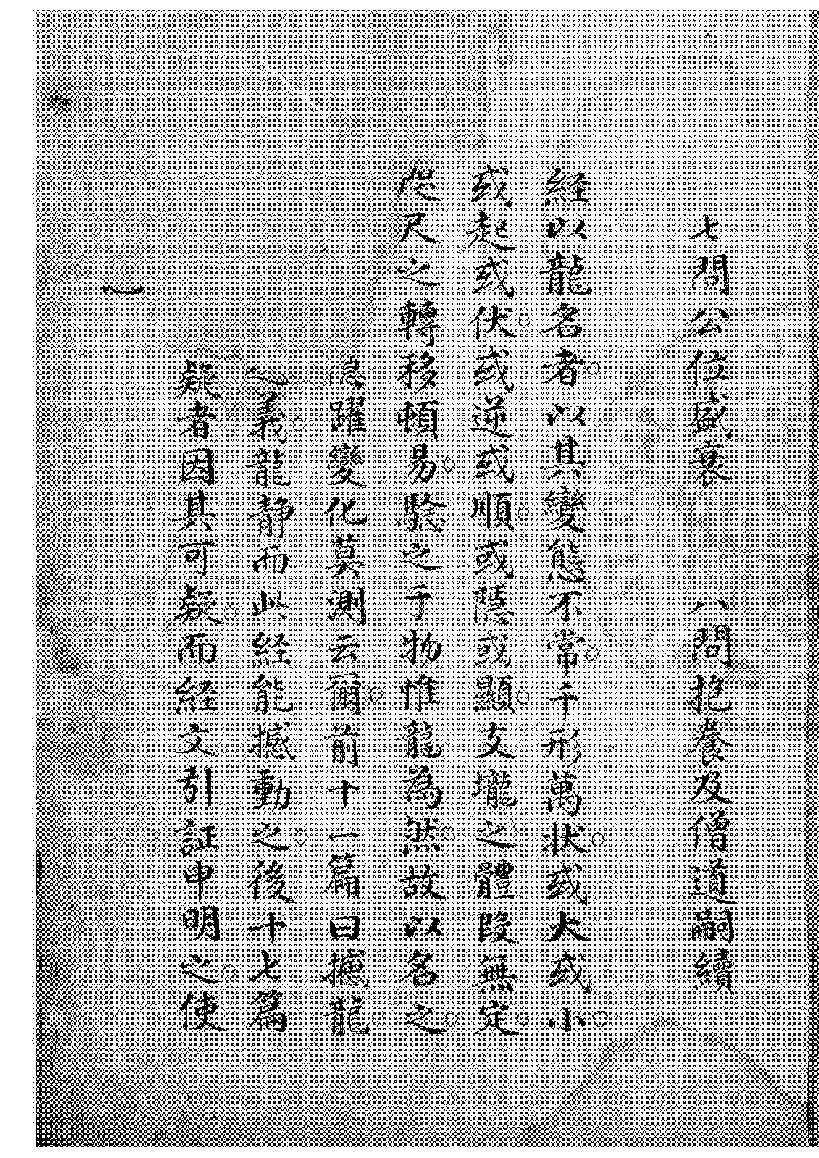 七問公位盛衰　八問抱養及僧道嗣續
經以龍名者以其變態不常千形萬狀或大或小
或起或伏或逆或順或隱或顯支壠之體段無定
咫尺之轉移頓易騐之于物惟龍為然故以名之
躍變化莫測云爾前十一篇曰撼龍
義龍靜而此経能撼動之後十七篇
疑者因其可疑而經文引証申明之使